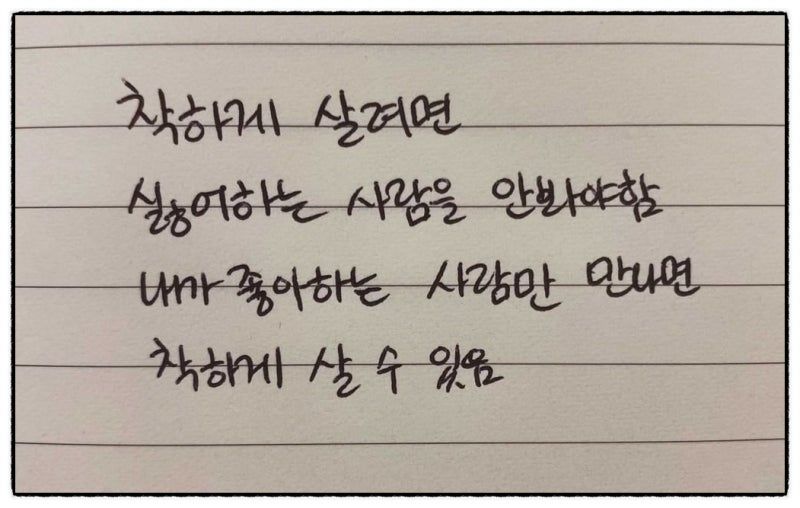 착하게 살려면
싫어하는 사람을 안봐야함
내가 좋아하는 사람만 만나면
착하게 살 수 있음